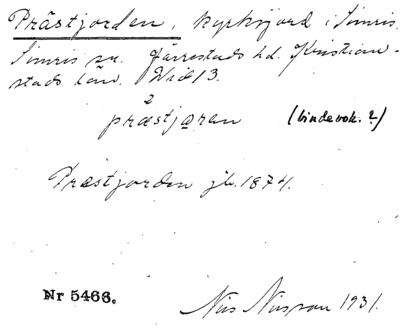 Prästjorden, kyrkojord i Simris.
Simris sn. Järrestads hd. Kristian-
stads län. Wid 13.
præ²stjǫren (bindevok.?)
Præstjorden jb. 1874.
Nr 5466.
Nils Nilsson 1931.